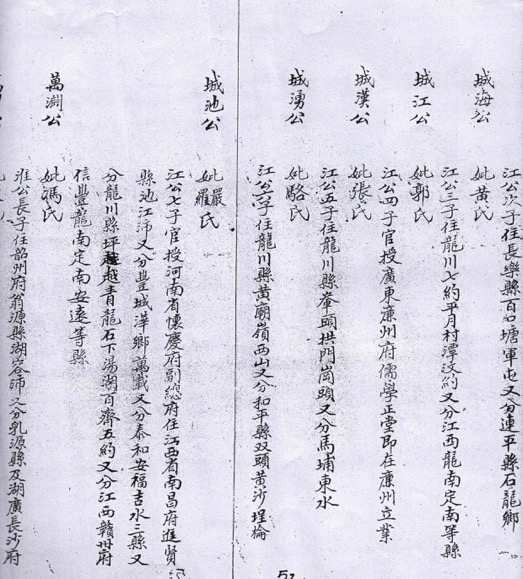 城海公
妣黃氏
江公次子住長樂縣百口塘軍屯又分連平縣石龍鄉
城江公
妣郭氏
江公三子住龍川七約平月村潭汶約又分江西龍南定南等縣
城漢公
妣張氏
江公四子官授廣東廉州府儒學正堂即在廉州立業
城湧公
妣駱氏
江公五子住龍川縣車頭拱門崗頭又分馬埔東水
江公六子住龍川縣黃廟嶺西山又分和平縣双頭黃沙埕倫
城池公
妣嚴羅氏
江公七子官授河南省懷慶府副總府住江西省南昌府進賢
縣池江沛又分豐城萍鄉萬載又分泰和安福吉水三縣又
分龍川縣坪越青龍石下湯湖百齊五約又分江西贛州府
信豐龍南定南安遠等縣
萬淵公
妣馮氏
淮公長子住韶州府翁源縣湖容沛又分乳源縣及湖廣長沙府